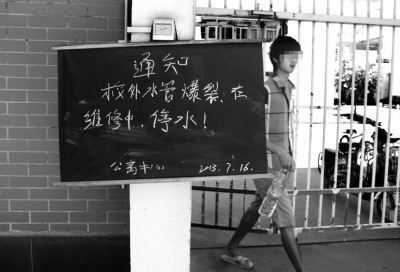 通知
校外水管爆裂,在
维修中,停水!
公寓中心 2013.7.16.